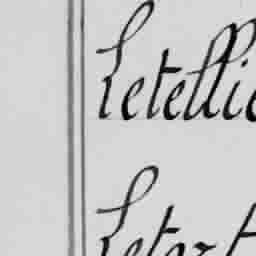 Letellie
Letort